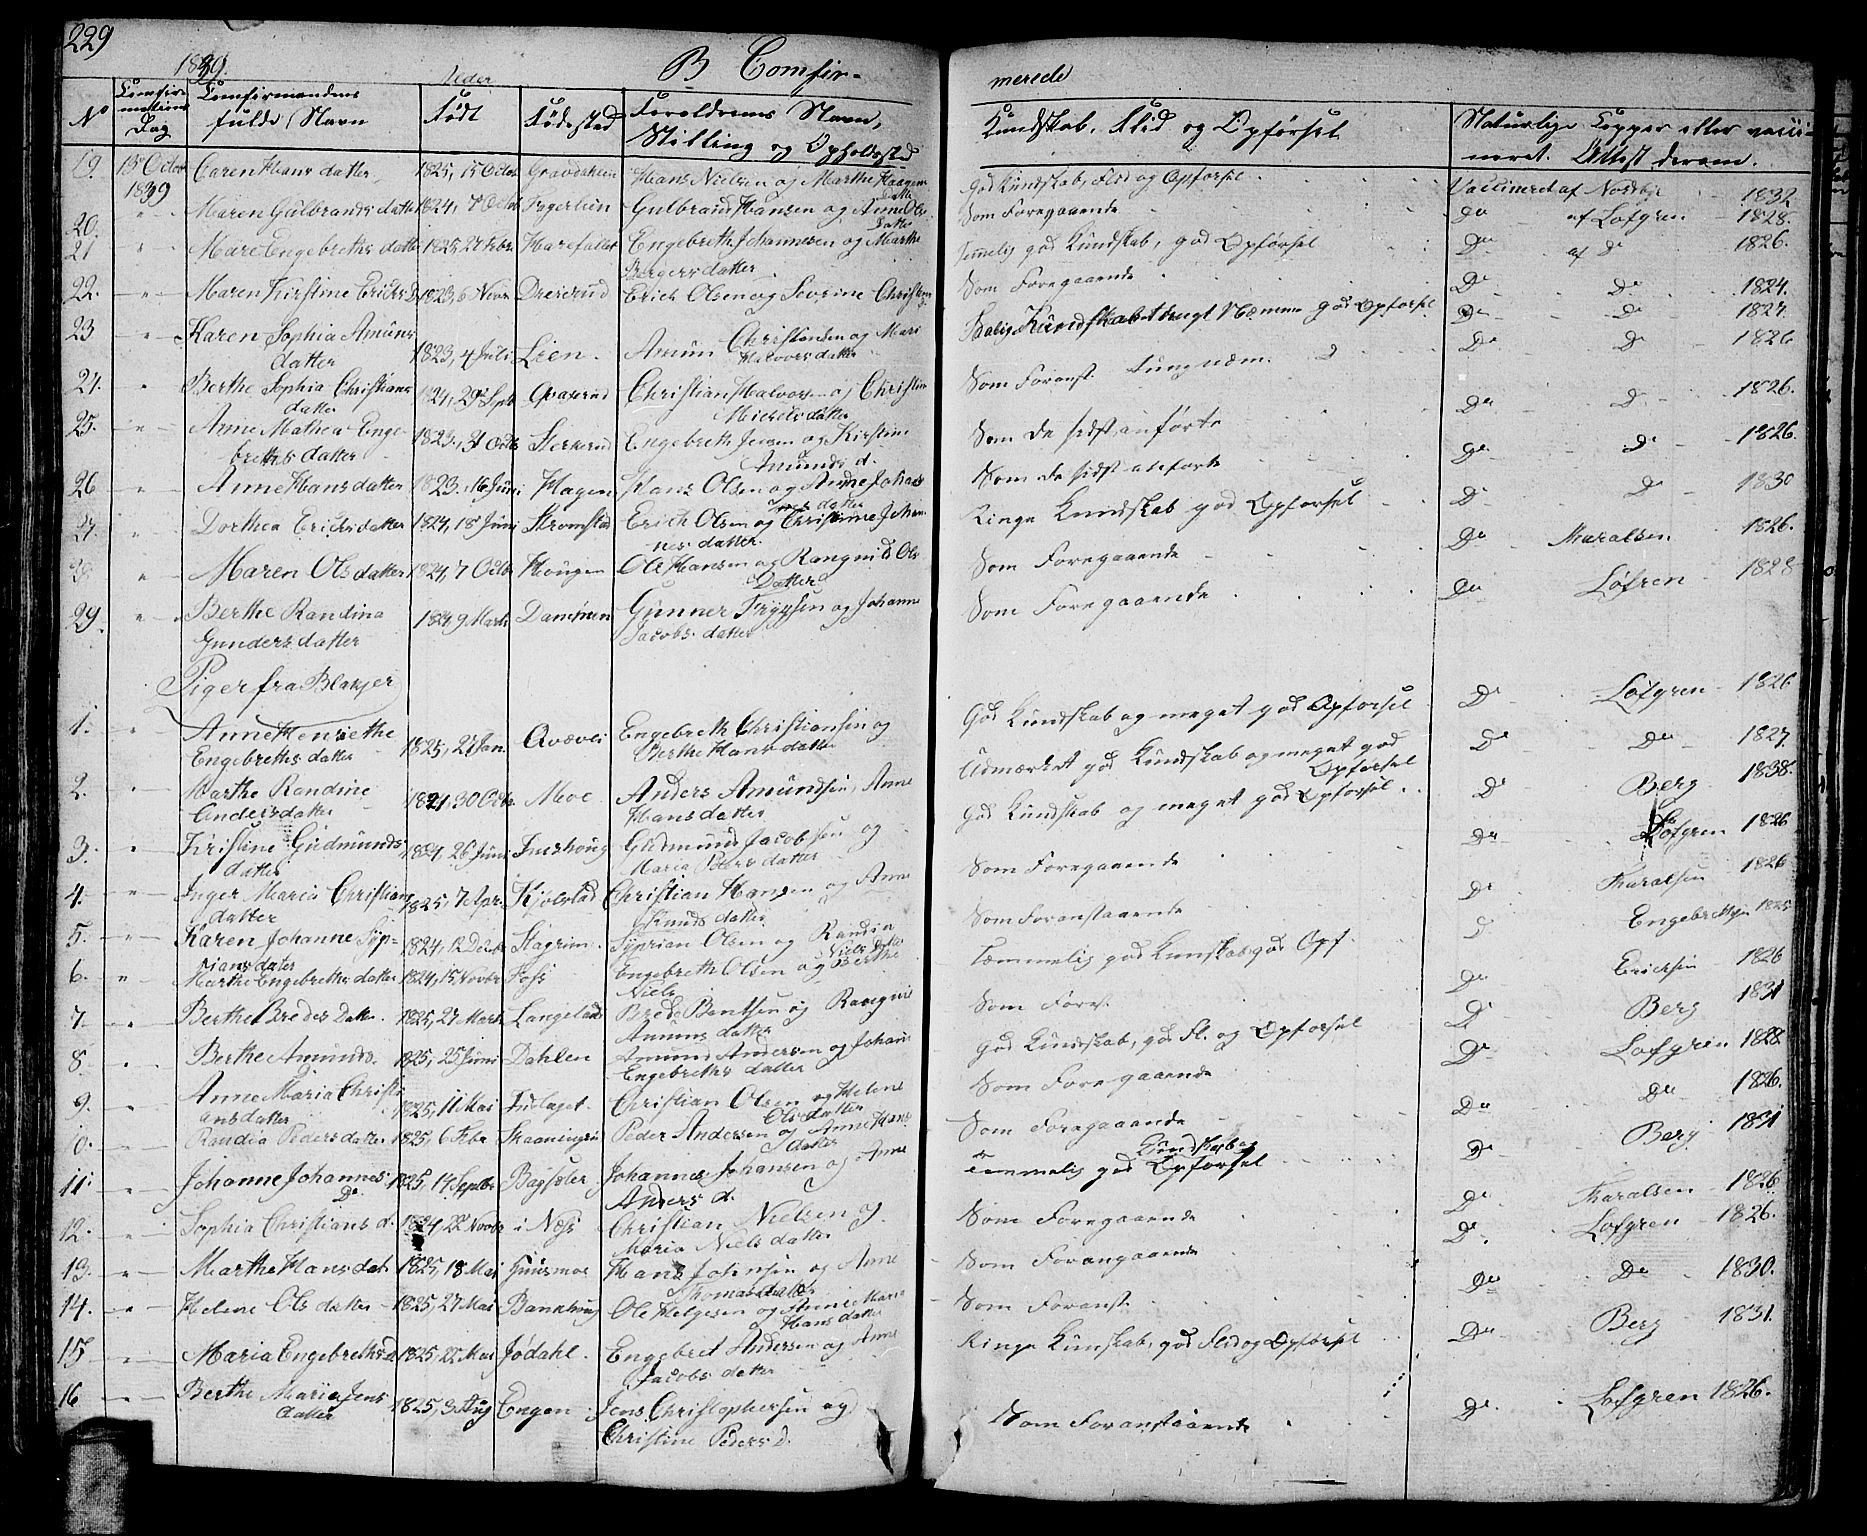 229
1839.
B Comfir-
merede
No
Comfir-
mations
Dag
Comfirmandens
fulde Navn
Født
Fødested
Foreldrenes Navn,
Stilling og Opholdssted
Kundskab, Flid og Opførsel
Naturlige Copper eller vacci-
neret. Attest derom.
19. 13 Octor 1839 Caren Hans datter 1825, 15 Octor Hans Nielsen og Marthe Haagens datter God Kundskab, Flid og Opførsel Vaccineret af Nordbye 1832
20. Maren Gulbrands datter 1824, Octor Gulbrand Hansen og Anne Ols datter Som Foregaaende Do af Løfgren 1828.
21 Mare Engebreths datter 1825, 27 Febr. Harefallet Engebreth Johannesen og Marthe Bergers datter Temmelig god Kundskab, god Opførsel Do af Do 1826.
22. Maren Kirstine Erichs D. 1823, 6 Novr Dreierud Erich Olsen og Severine Christens Som Foregaaende Do Do 1824.
23 Karen Sophia Amuns datter 1823, 4 Juli Lien. Amun Christensen og Mari Halvorsdatter Kundskab tungt Nemme god Opførsel Do Do 1827.
Do Do 1826
24. Berthe Sophia Christians datter 1824, 29 Sptb Christian Halvors og Christin Michels datter Som Foranst. tung nem. Do Do 1826.
25. Anne Mathea Enge- breths datter 1823, 31 Octb Engebreth Jensen og Kirstine Amunds d. Som de sidst anførte Do Do 1826.
26 Anne Hans datter 1823, 16 Juni Hagen Hans Olsen og Anne Johannes datter Som de sidst anførte Do Do 1830
27. Dorthea Erichs datter 1824, 18 Juni Erich Olsen og Christine Johan- nes datter Ringe Kundskab god Opførsel Do Haralsen 1826.
28 Maren Ols datter 1824, 7 Octbr Hougen Ole Hansen og Rangnild Ols Datter Som Foregaaende Do Løfren 1828
29. Berthe Randina Gunders datter 1824, 9 Marts Dammen Gunner Trygsen og Johanne Jacobs datter Som Foregaaende
Piger fra Blakjer
1. Anne Henriethe Engebrettes datter 1825, 27 Jan. Engebreth Christiansen og Berthe Hans datter God Kundskab og meget god Opførsel Do Løfgren 1826
2. Marthe Randine Anders datter 1824, 30 Octr Moe Anders Amundsen, Anne Hans datter Udmærket god Kundskab og meget god Opførsel Do Do 1827.
3. Kristine Gudmunds datter 1824, 26 Juni Gudmund Jacobsen og Maria Peders datter God Kundskab og meget god Opførsel Do Berg 1838.
4. Inger Maria Christians datter 1825, 7 Apr. Kjølstad Christian Hansen og Anne Knuds datter Som Foregaaende Do Løfgren 1826
5. Karen Johanne Syp- rians dater 1824, 12 Decbr Syprian Olsen og Randin Niels datter Som Foranstaaende Do Tharalsen 1826
6. Marthe Engebreths datter 1824, 15 Novbr Foss Engebreth Olsen og Berthe Niels Temmelig god Kunskab, god Opf. D Engebretsen 1825
7. Berthe Breders Datter. 1825, 27 Marts Langeland Brede Bentsen og Rangnil Amuns datter Som Forst. Do Ericksen 1826
8. Berthe Amunds. 1825, 25 Juni Dahlen Amund Andersen og Johanne Engebreths datter God Kundskab, god Fl. og Opførsel Do Berg 1831
9. Anne Maria Christi- ansdatter 1825, 11 Mai Christian Olsen og Helene Ols datter Som Foregaaende Do Løfgren 1828
0. Randia Peders datter 1825, 6 Febr Peder Andersen og Anne Hans datter Som Foregaaende Do Do 1826.
11. Johanne Johannes Dr. 1825, 14 Septbr Johannes Johansen og Anne Anders d. Temmelig god Kundskab og Opførsel Do Berg 1831
12. Sophia Christians d. 1824, 22 Novbr i Næss Christian Nielsen og Maria Niels datter Som Foregaaende Do Tharalsen 1826
13. Marthe Hans dat 1825, 18 Mai Hans Johnsen og Anne Thomas datter Som Forangaaende Do Løfgren 1826.
14. Helene Ols datter 1825, 27 Mai Ole Helgesen og Anne Maria Hans datter Som Foranst. Do Do 1830.
15 Maria Engebreths d 1825, 22 Mai Jødahl. Engebret Andersen og Anne Jacobs datter Ringe Kunskab, god Flid og Opførsel Do Berg 1831.
16 Berthe Maria Jens datter 1825, 3 Aug Engen Jens Christophersen og Christine Peders d. Som Foranstaaende Do Løfgren 1826.